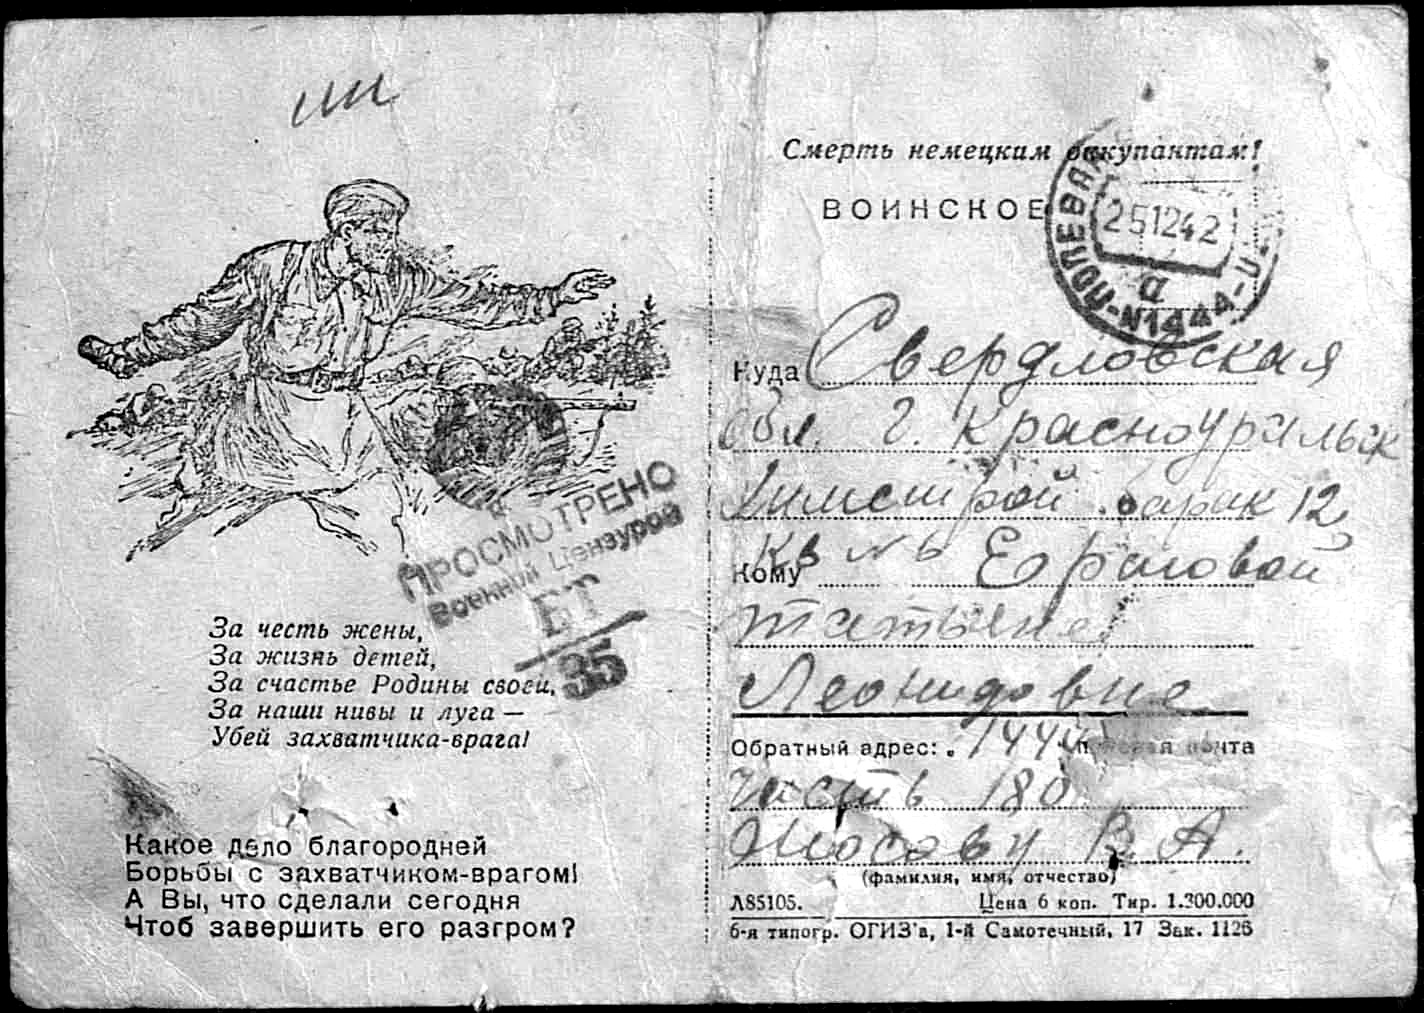 За честь жены,
За жизнь детей,
За счастье Родины своей,
За наши нивы и луга —
Убей захватчика-врага!
Какое дело благородней
Борьбы с захватчиком-врагом!
А Вы, что сделали сегодня
Чтоб завершить его разгром?
ПРОСМОТРЕНО
Военной Цензурой
35
Смерть немецким оккупантам!
ВОИНСКОЕ
ПОЛЕВАЯ
251242
а
N1444
Куда Свердловская
обл. г. Красноуральск
барак 12
кв № 6
Кому
Татьяне
Леонидовне
Обратный адрес: 1444 полевая почта
часть 180
В. А.
(фамилия, имя, отчество)
Л85105. Цена 6 коп. Тир. 1.300.000
6-я типогр. ОГИЗ'а, 1-й Самотечный, 17 Зак. 1126